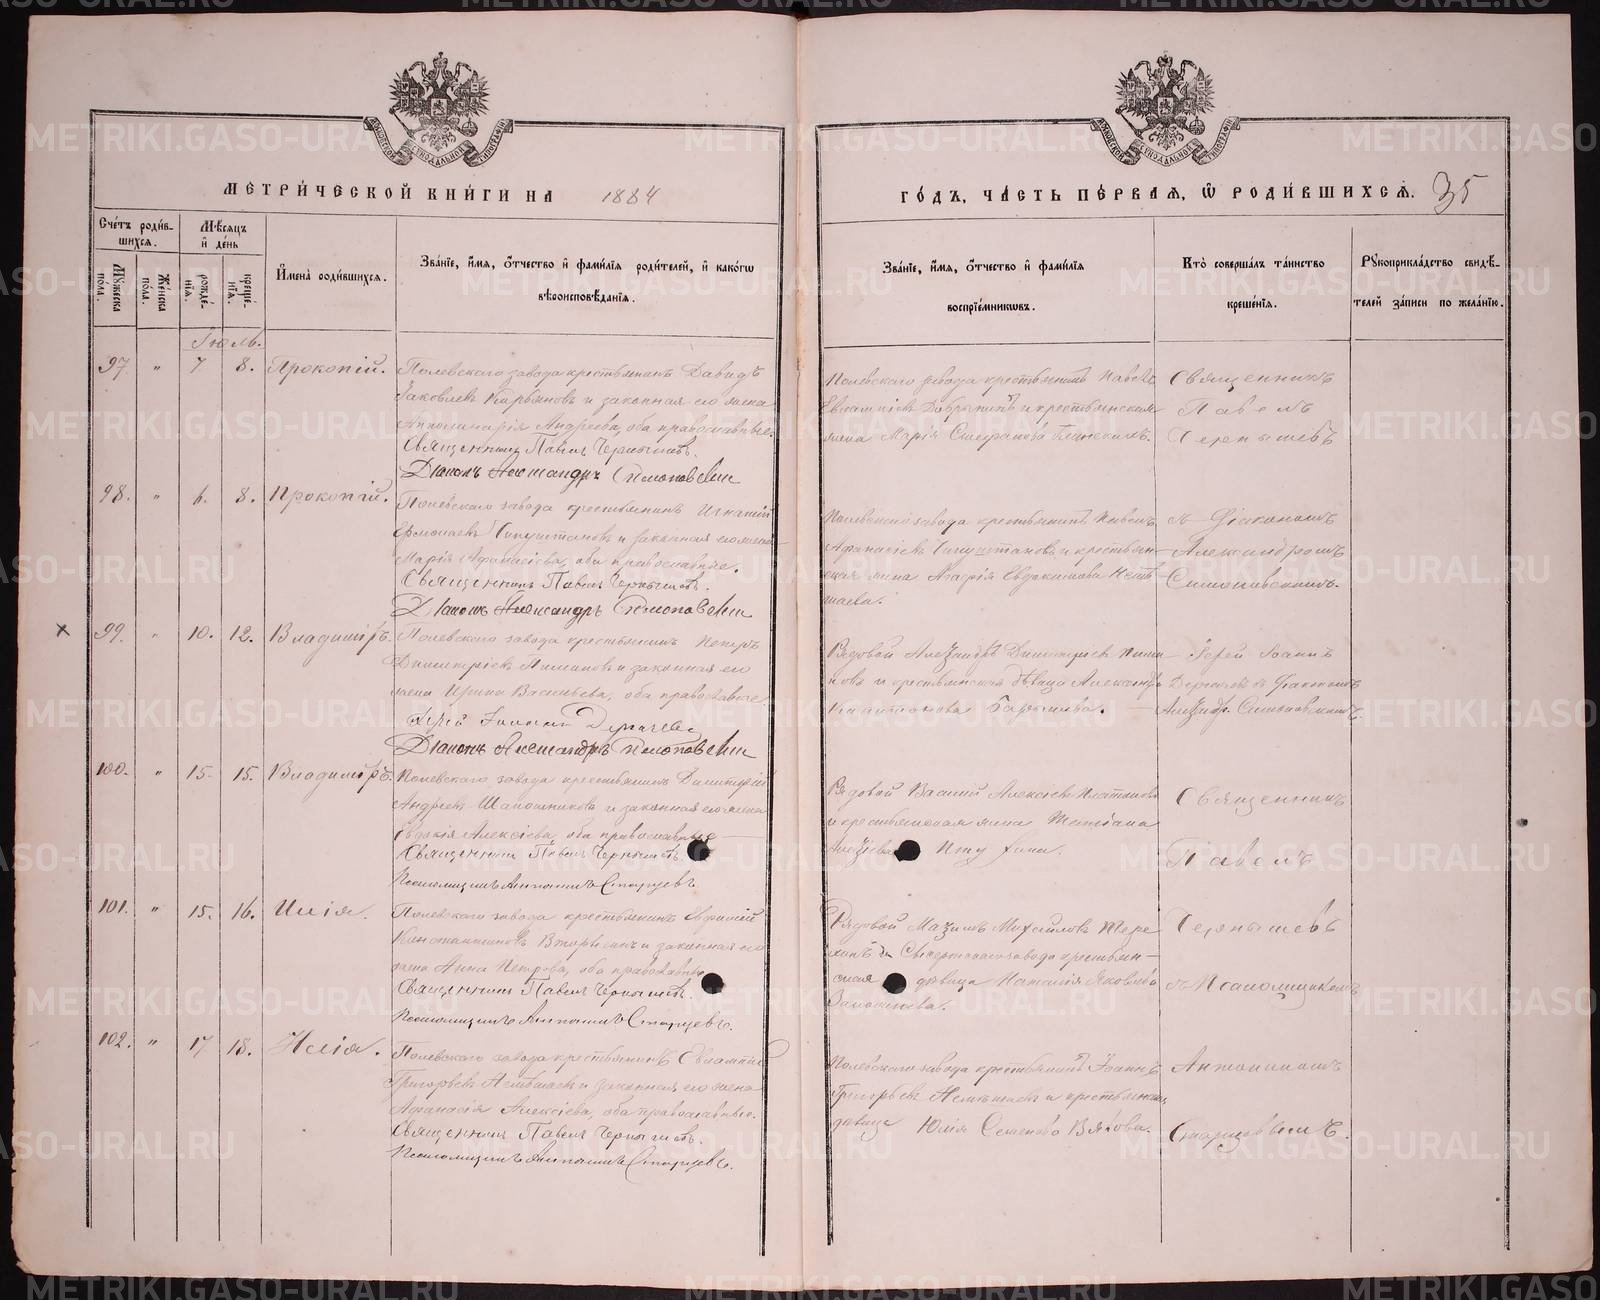 МЕТРИ́ЧЕСКОЙ КНИ́ГИ НА 1884
ГО́ДЪ, ЧА́СТЬ ПЕ́РВАЯ, Ѡ РОДИ́ВШИХСѦ. 35
Сче́тъ роди́в-
шихся.
Мѣ́сяцъ
и де́нь
Мꙋжеска пола.
Же́нска пола.
рожде́-
нїя.
креще́-
нїя.
И҆мена̀ роди́вшихся.
Зва́нїе, и҆́мя, ѻ҆́тчество и҆ фами́лїя роди́телей, и҆ како́гѡ
вѣроисповѣ́данїя.
Зва́нїе, и҆́мя, ѻ҆́тчество и҆ фами́лїя
воспрїе́мникѡвъ.
Кто̀ соверша́лъ та́инство
креще́нїя.
Рꙋкоприкла́дство свидѣ́-
телей за́писи по жела́нїю.
Іюль.
97. " 7 8. Прокопій.
Полевскаго завода крестьянинъ Давидъ
Яковлевъ Карьяновъ и законная его жена
Апполинарія Андреева, оба православные.
Священникъ Павелъ Чернышевъ.
Діаконъ Александръ Симоновскій
Полевскаго завода крестьянинъ
Евлампіевъ Добрынинъ и крестьянская
жена Марія Стефанова
Священникъ
Павелъ
Чернышевъ
98. " 6. 8. Прокопій.
Полевскаго завода крестьянинъ Игнатій
Чипуштановъ и законная его жена
Марія Афанасіева, оба православные.
Священникъ Павелъ Чернышевъ.
Діаконъ Александръ Симоновскій
Полевскаго завода крестьянинъ
Афанасіевъ Чипуштановъ и крестьян-
ская жена Евдокимова
съ Діакономъ
Александромъ
Симоновскимъ.
99. " 10. 12. Владиміръ.
Полевскаго завода крестьянинъ Петръ
Димитріевъ Пашиновъ и законная его
жена Ирина Васильева, оба православные.
Іерей Іоаннъ Дерачевъ
Діаконъ Александръ Симоновскій
Рядовой Александръ Димитріевъ
и крестьянская дѣвица Александра
Капитонова
Іерей Іоаннъ
съ Діакономъ
Александр. Симоновскимъ.
100. " 15. 15. Владиміръ.
Полевскаго завода крестьянинъ Димитрій
Андреевъ Шапошниковъ и законная его жена
Евдокія Алексіева, оба православные
Священникъ Павелъ Чернышевъ.
Псаломщикъ Антонинъ Старцевъ.
Рядовой Василій Алексіевъ
и крестьянская жена Татіана
Священникъ
Павелъ
101. " 15. 16. Илія.
Полевскаго завода крестьянинъ Евфимій
Константиновъ и законная его
жена Анна Петрова, оба православные
Священникъ Павелъ Чернышевъ.
Псаломщикъ Антонинъ Старцевъ.
Рядовой Максимъ Михайловъ
Сысертскаго завода крестьян-
ская дѣвица Наталія Яковлева
Чернышевъ
съ Псаломщикомъ
102. " 17 18. Илія.
Полевскаго завода крестьянинъ Евлампій
Григорьевъ и законная его жена
Афанасія Алексіева, оба православные.
Священникъ Павелъ Чернышевъ.
Псаломщикъ Антонинъ Старцевъ.
Полевскаго завода крестьянинъ Іоаннъ
Григорьевъ и крестьянская
дѣвица Юлія Семенова
Антониномъ
Старцевымъ.
METRIKI.GASO-URAL.RU